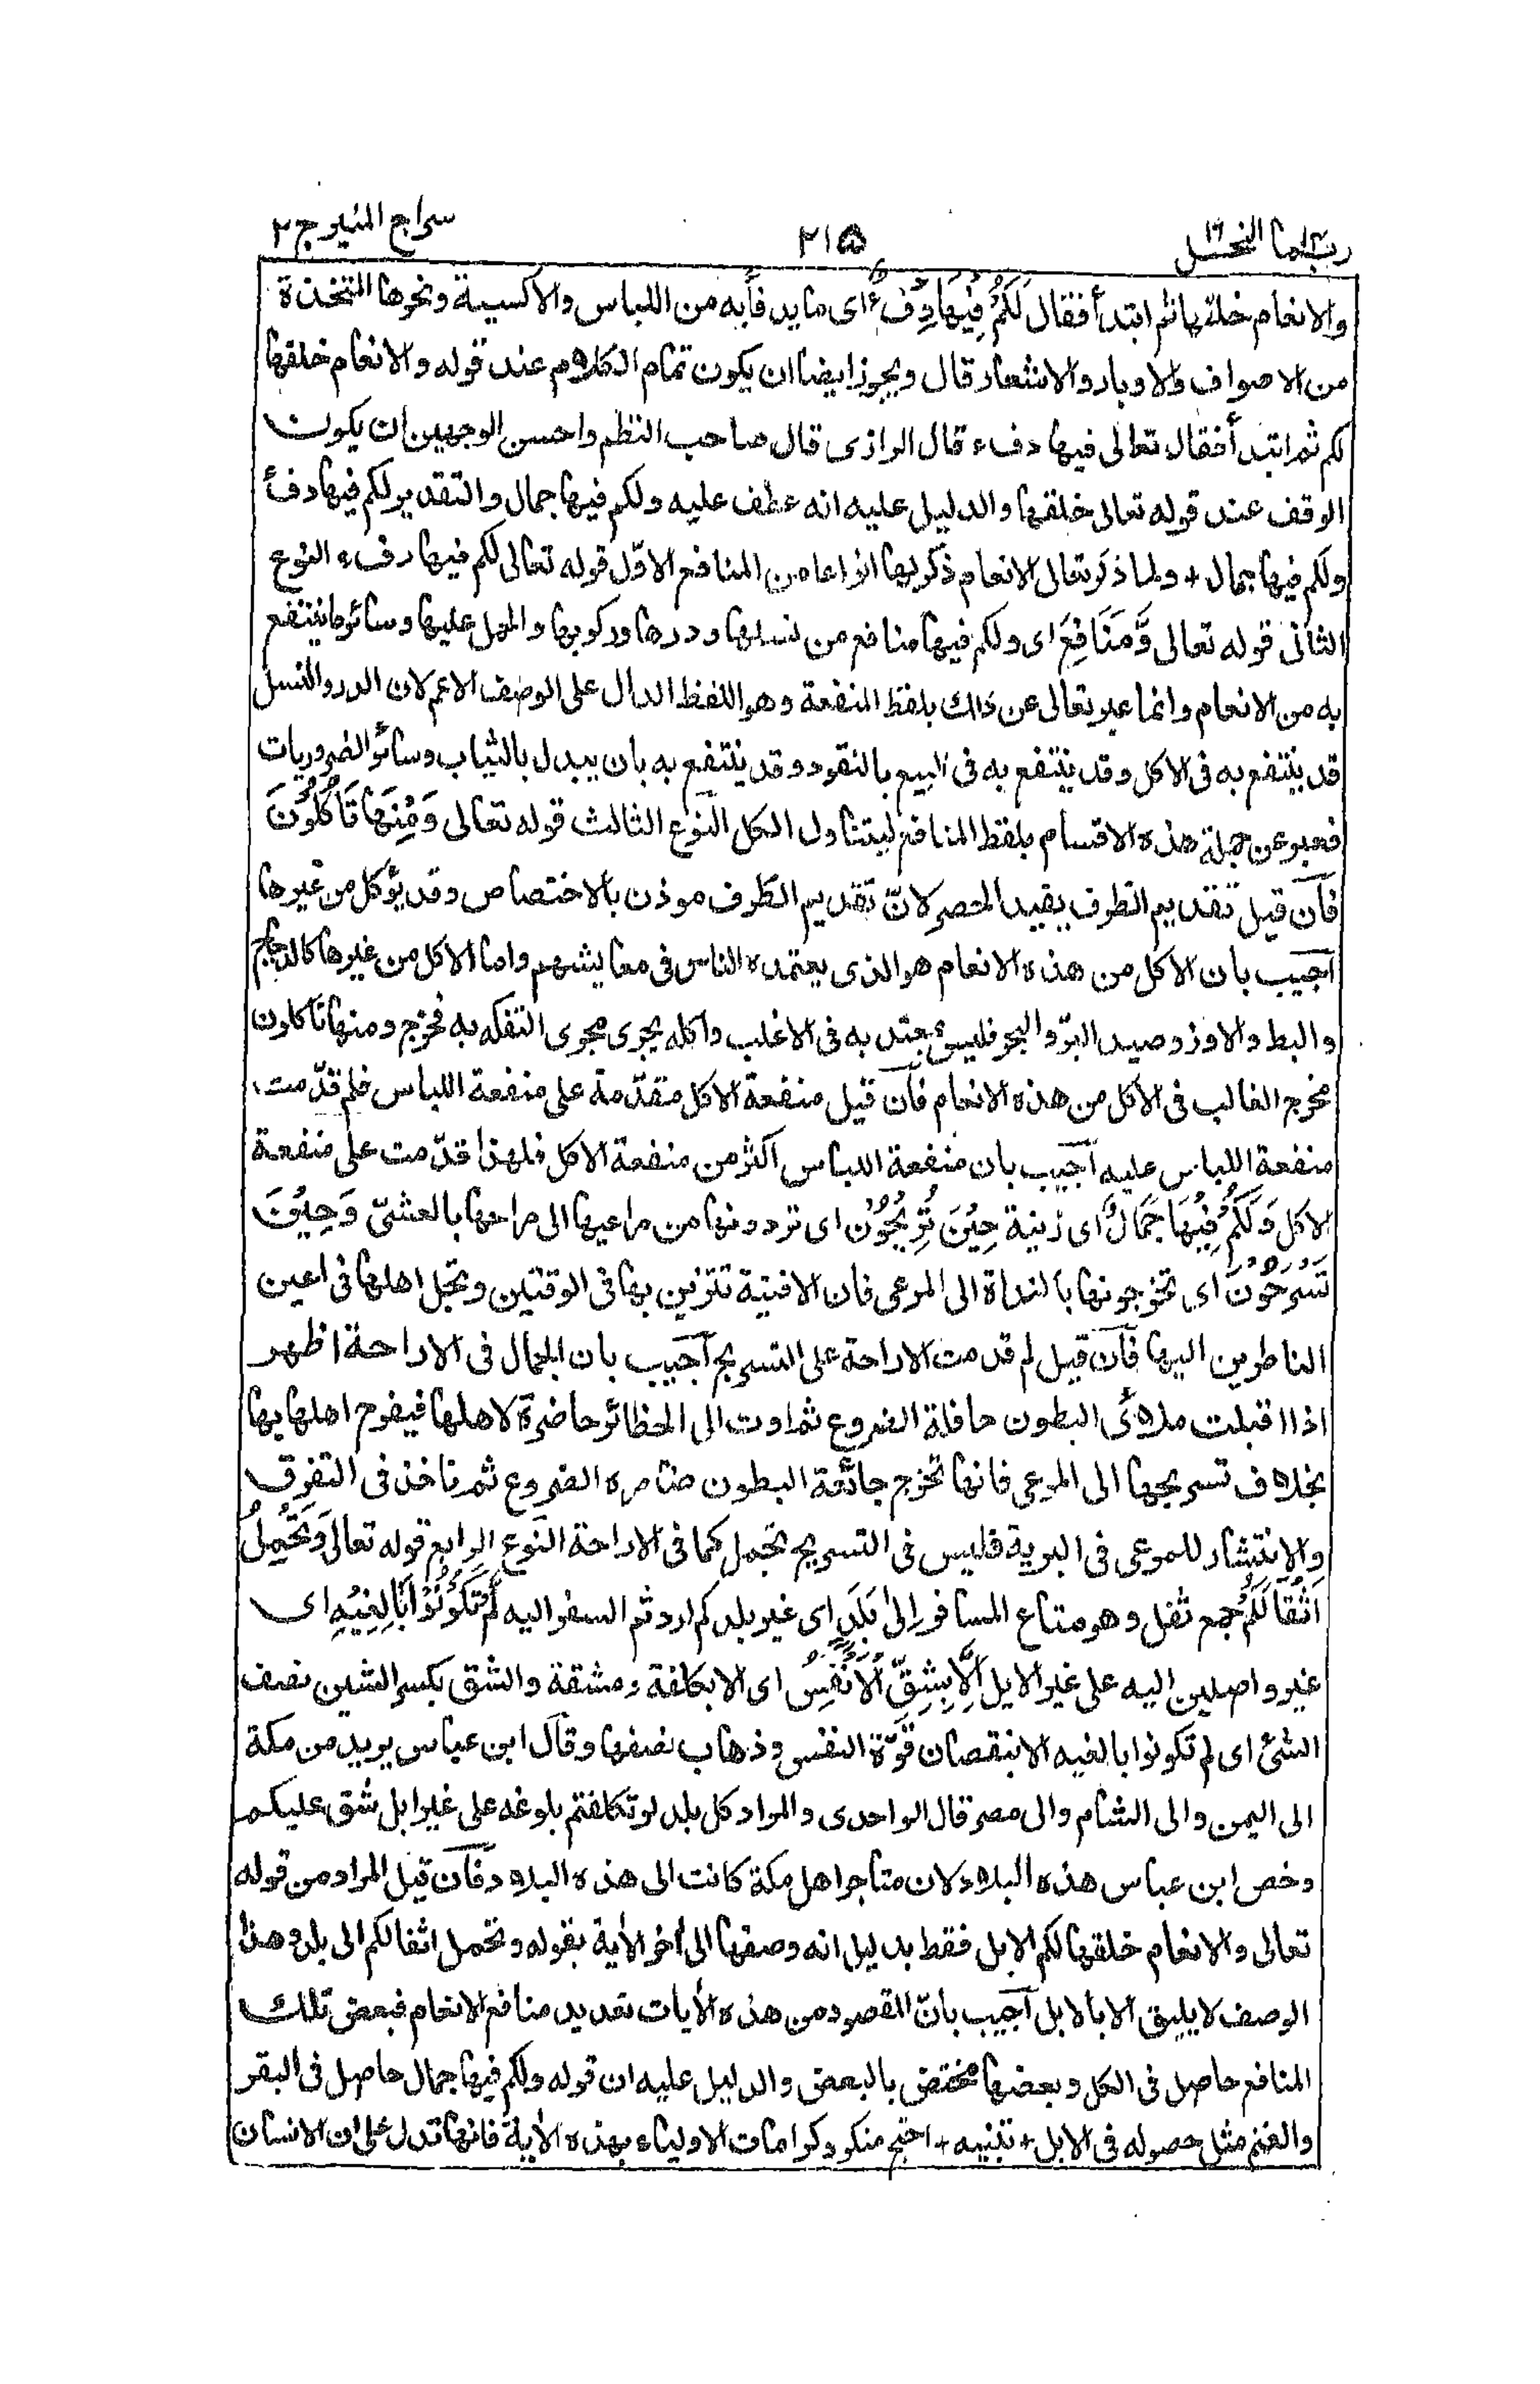 ربما ١٤ النحل ١٦
٢١٥
سراج المنير ج ٢
والانعام خلقها ثم ابتدأ فقال لَكُمْ فِيهَا دِفْءٌ اى ما يدفأ به من اللباس والاكسية ونحوها المتخذة
من الاصواف والاوبار والاشعار قال ويجوز ايضا ان يكون تمام الكلام عند قوله والانعام خلقها
لكم ثم ابتدأ فقال تعالى فيها دفء قال الرازى قال صاحب النظم واحسن الوجهين ان يكون
الوقف عند قوله تعالى خلقها والدليل عليه انه عطف عليه ولكم فيها جمال والتقدير لكم فيها دفأ
ولكم فيها جمال + ولما ذكر تعالى الانعام ذكر لها انواعا من المنافع الاوّل قوله تعالى لكم فيها دفء النوع
الثانى قوله تعالى وَّمَنَافِعَ اى ولكم فيها منافع من نسلها ودرها وركوبها والحمل عليها وسائر ما ينتفع
به من الانعام وانما عبر تعالى عن ذلك بلفظ المنفعة وهو اللفظ الدال على الوصف الاعم لان الدر والنسل
قد ينتفع به فى الاكل وقد ينتفع به فى البيع بالنقود وقد ينتفع به بان يبدل بالثياب وسائر الضروريات
فعبر عن جملة هذه الاقسام بلفظ المنافع ليتناول الكل النوع الثالث قوله تعالى وَمِنْهَا تَأْكُلُوْنَ
فان قيل تقديم الظرف يفيد الحصر لانّ تقديم الظرف موذن بالاختصاص وقد يؤكل من غيرها
اجيب بان الاكل من هذه الانعام هو الذى يعتمده الناس فى معايشهم واما الاكل من غيرها كالدجاج
والبط والاوز وصيد البرّ والبحر فليس بمعتد به فى الاغلب واكله يجرى مجرى التفكه به فخرج ومنها تاكلون
مخرج الغالب فى الاكل من هذه الانعام فان قيل منفعة الاكل متقدّمة على منفعة اللباس فلم قدّمت
منفعة اللباس عليه اجيب بان منفعة اللباس اكثر من منفعة الاكل فلهذا قدّمت على منفعة
الاكل وَلَكُمْ فِيْهَا جَمَالٌ اى زينة حِيْنَ تُرِيْحُوْنَ اى تردونها من مراعيها الى مراحها بالعشىّ وَحِيْنَ
تَسْرَحُوْنَ اى تخرجونها بالغداة الى المرعى فان الافنية تتزين بها فى الوقتين وتجل اهلها فى اعين
الناظرين اليها فان قيل لم قدمت الاراحة على التسريح اجيب بان الجمال فى الاراحة اظهر
اذا اقبلت ملائ البطون حافلة الضروع ثم اوت الى الحظائر حاضرة لاهلها فيفرح اهلها بها
بخلاف تسريحها الى المرعى فانها تخرج جائعة البطون ضامره الضروع ثم تاخذ فى التفرق
والانتشار للمرعى فى البرية فليس فى التسريح تجمل كما فى الاراحة النوع الرابع قوله تعالى وَتَحْمِلُ
اَثْقَالَكُمْ جمع ثقل وهو متاع المسافر اِلٰى بَلَدٍ اى غير بلدكم اردتم السفر اليه لَّمْ تَكُوْنُوْا بَالِغِيْهِ اى
غير واصلين اليه على غير الابل اِلَّا بِشِقِّ الْاَنْفُسِ اى الا بكلفة ومشقة والشق بكسر الشين نصف
الشئ اى لم تكونوا بالغيه الا بنقصان قوّة النفس وذهاب نصفها وقال ابن عباس يريد من مكة
الى اليمن والى الشام والى مصر قال الواحدى والمراد كل بلد لو تكلفتم بلوغه على غير ابل شق عليكم
وخص ابن عباس هذه البلاد لان متاجر اهل مكة كانت الى هذه البلاد فان قيل المراد من قوله
تعالى والانعام خلقها لكم الابل فقط بدليل انه وصفها الى اخر الأية بقوله وتحمل اثقالكم الى بلد وهذا
الوصف لا يليق الا بالابل اجيب بانّ المقصود من هذه الأيات تعديد منافع الانعام فبعض تلك
المنافع حاصل فى الكل وبعضها مختص بالبعض والدليل عليه ان قوله ولكم فيها جمال حاصل فى البقر
والغنم مثل حصوله فى الابل + تنبيه + احتج منكرو كرامات الاولياء بهذه الأية فانها تدل على ان الانسان